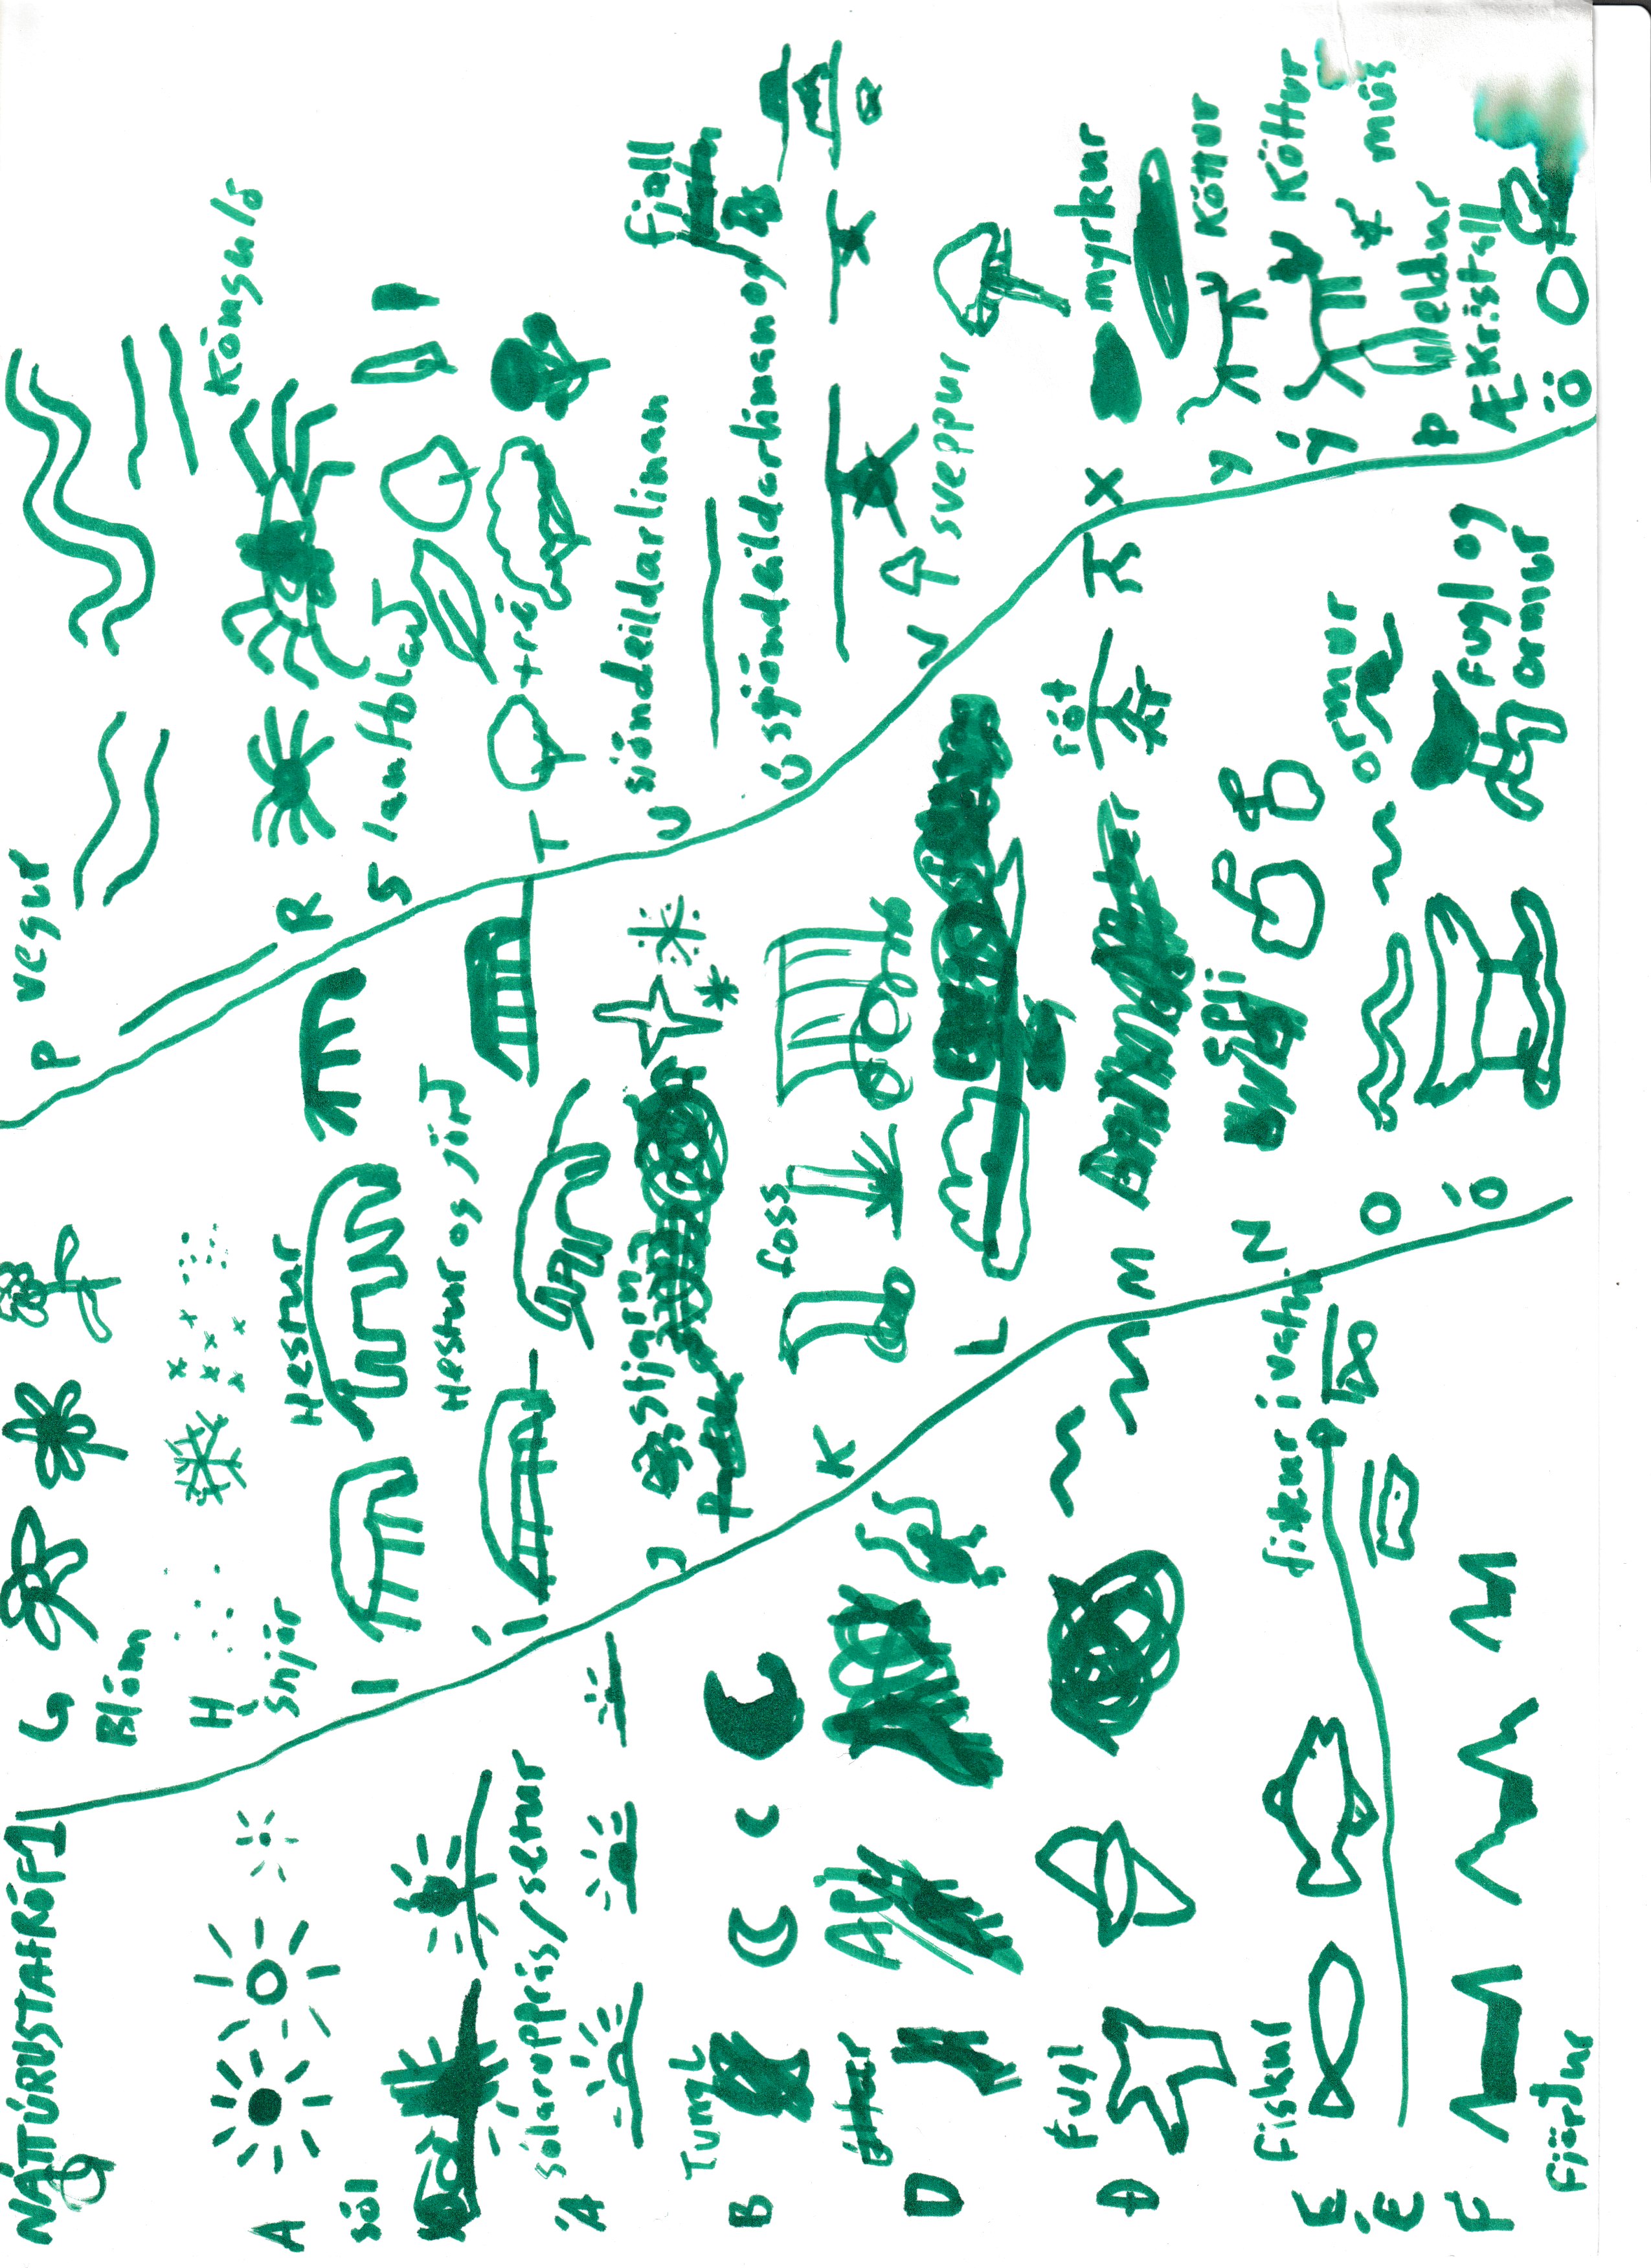 NÁTTÚRUSTAFRÓF 1
A
sól
sólaruppprás/setur
Á
Tungl
B
Api
D
fugl
Ð
fiskur
E
fiskur í vatni
É
F
fjörður
G
Blóm
H
Snjór
Hestur
I
Hestur og jörð
Í
J stjarna
K foss
L
M rót
N epli
O ormur
Ó fugl og ormur
P vegur
R Kónguló
S laufblað
T tré
U sjóndeildarlínan
fjall
Ú sjóndeildarlínan og
V sveppur
X myrkur
Y Köttur
Ý Köttur
& mús
Þ eldur
Æ Kristall
Ö